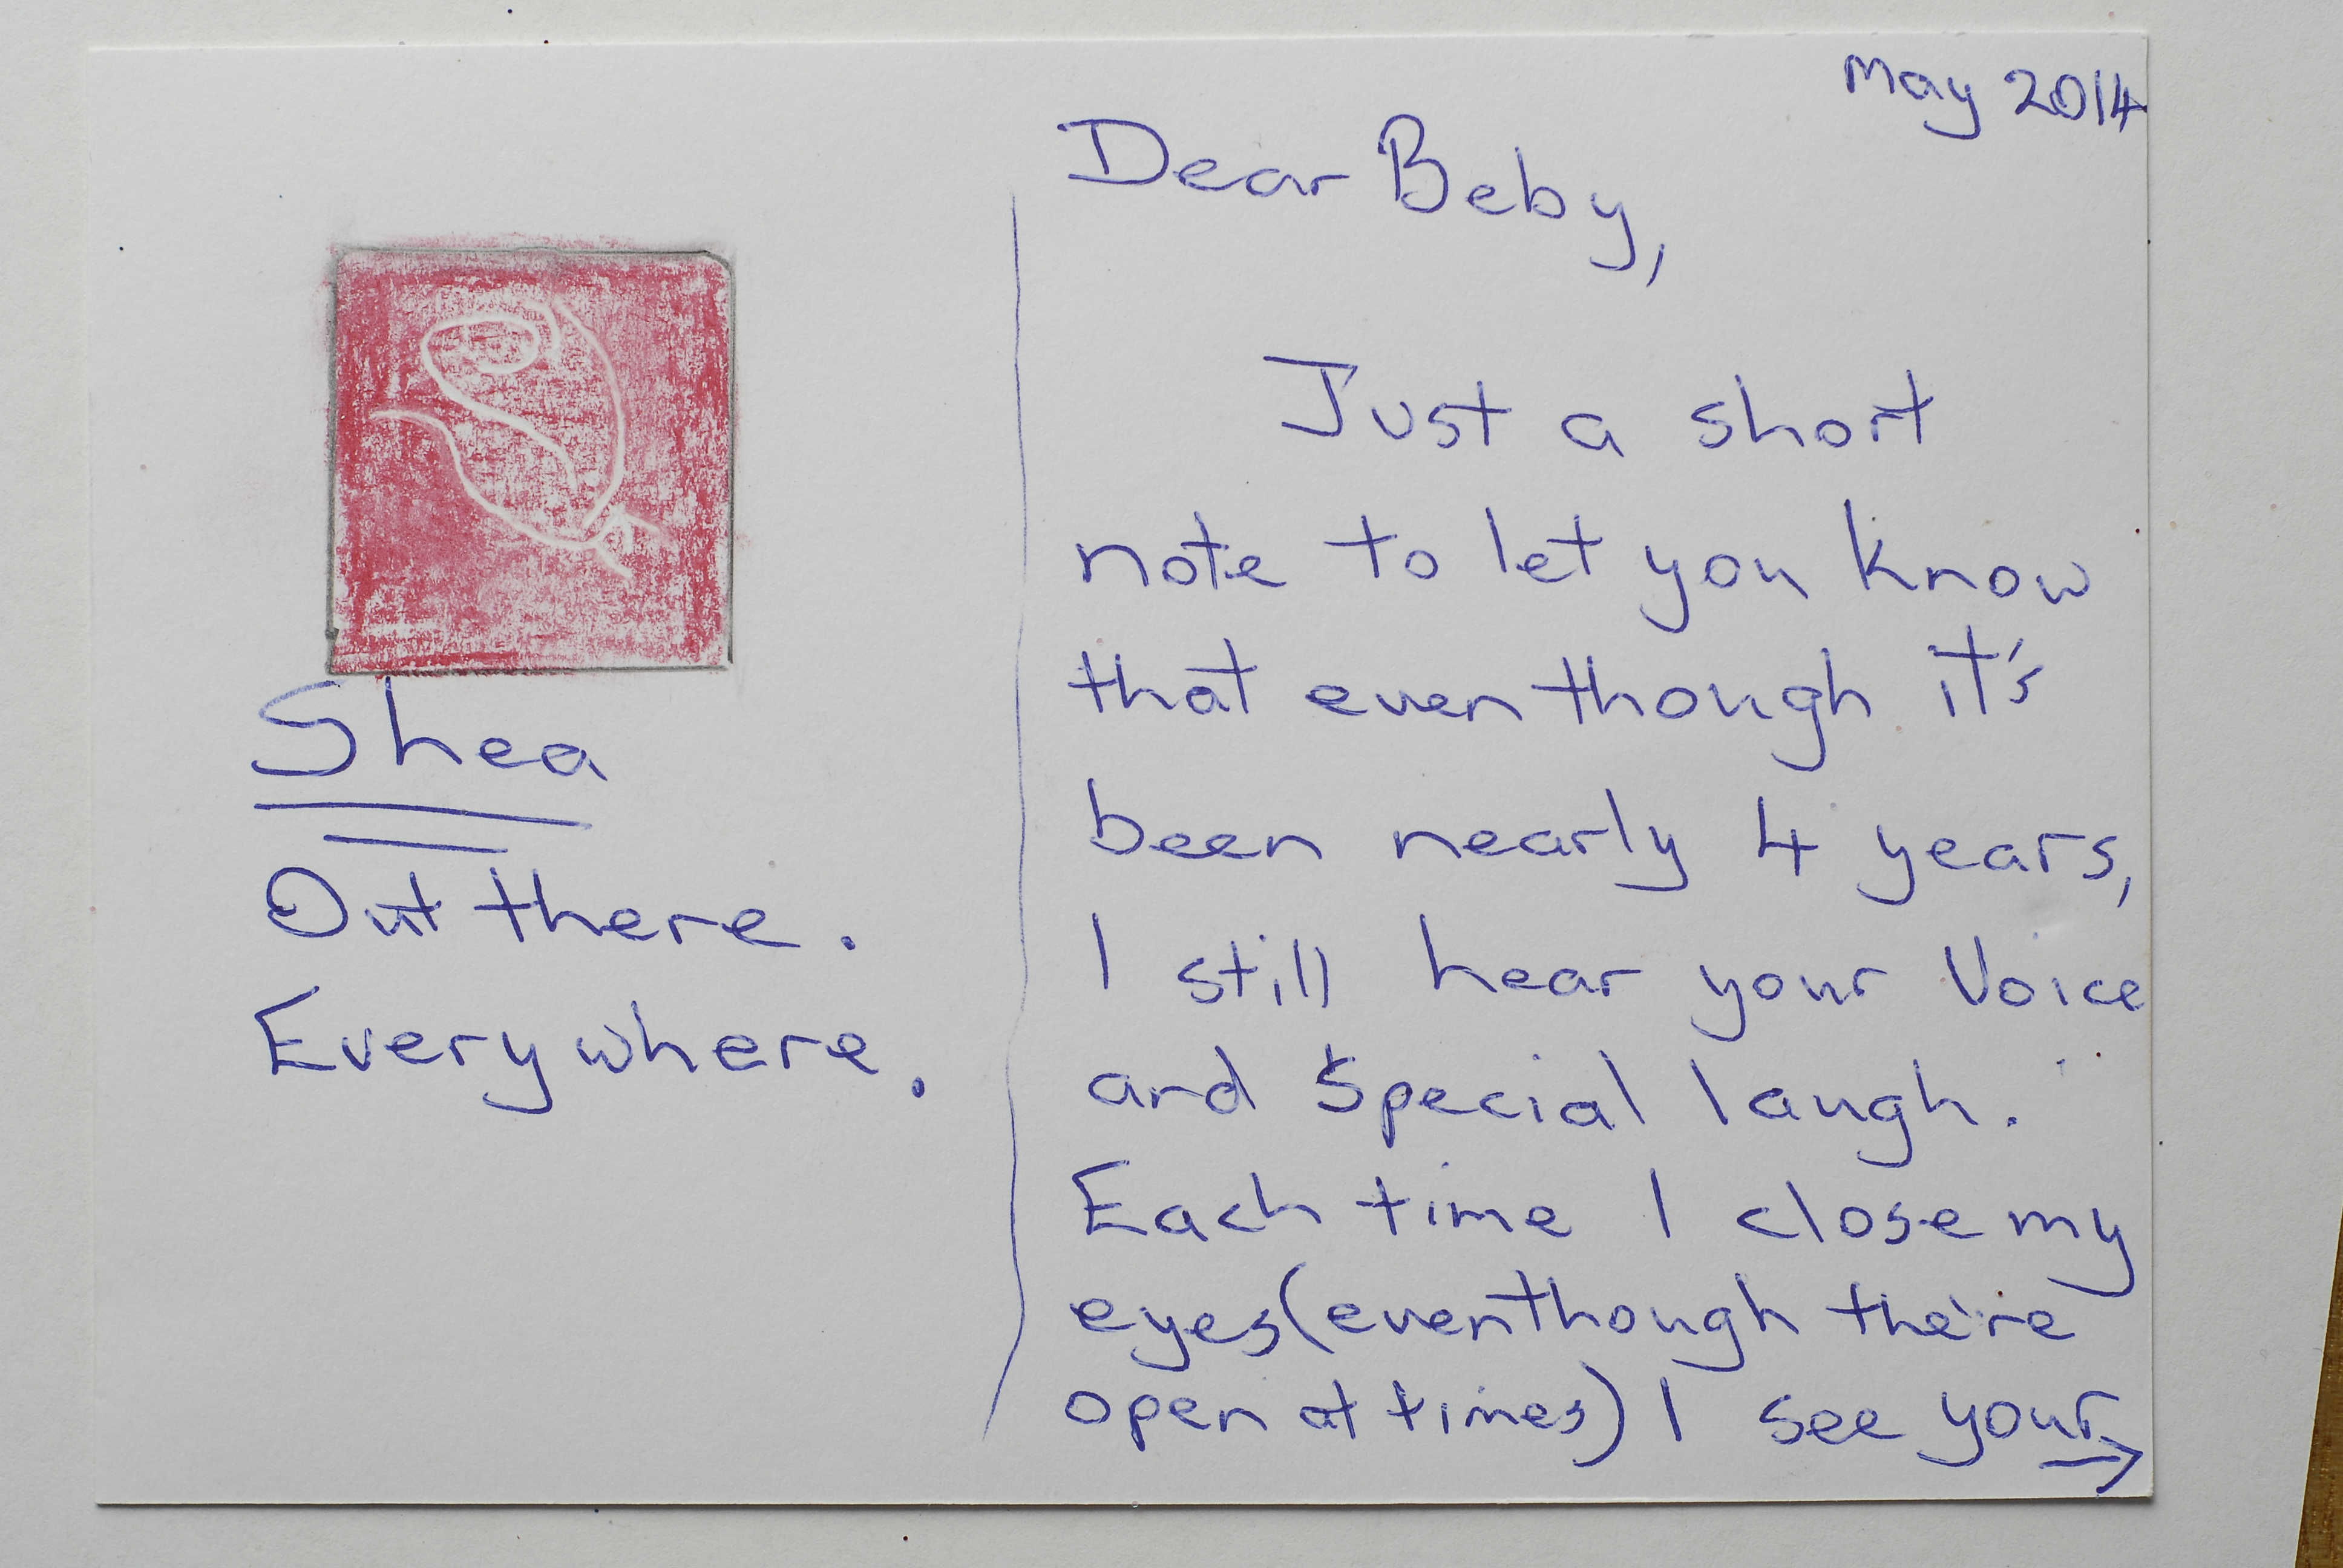 May 2014
Dear Beby,
Just a short
note to let you know
that eventhough it's
been nearly 4 years,
I still hear your Voice
and special laugh.
Each time I close my
eyes (eventhough the're
open at times) I see your
Shea
Out there.
Everywhere.